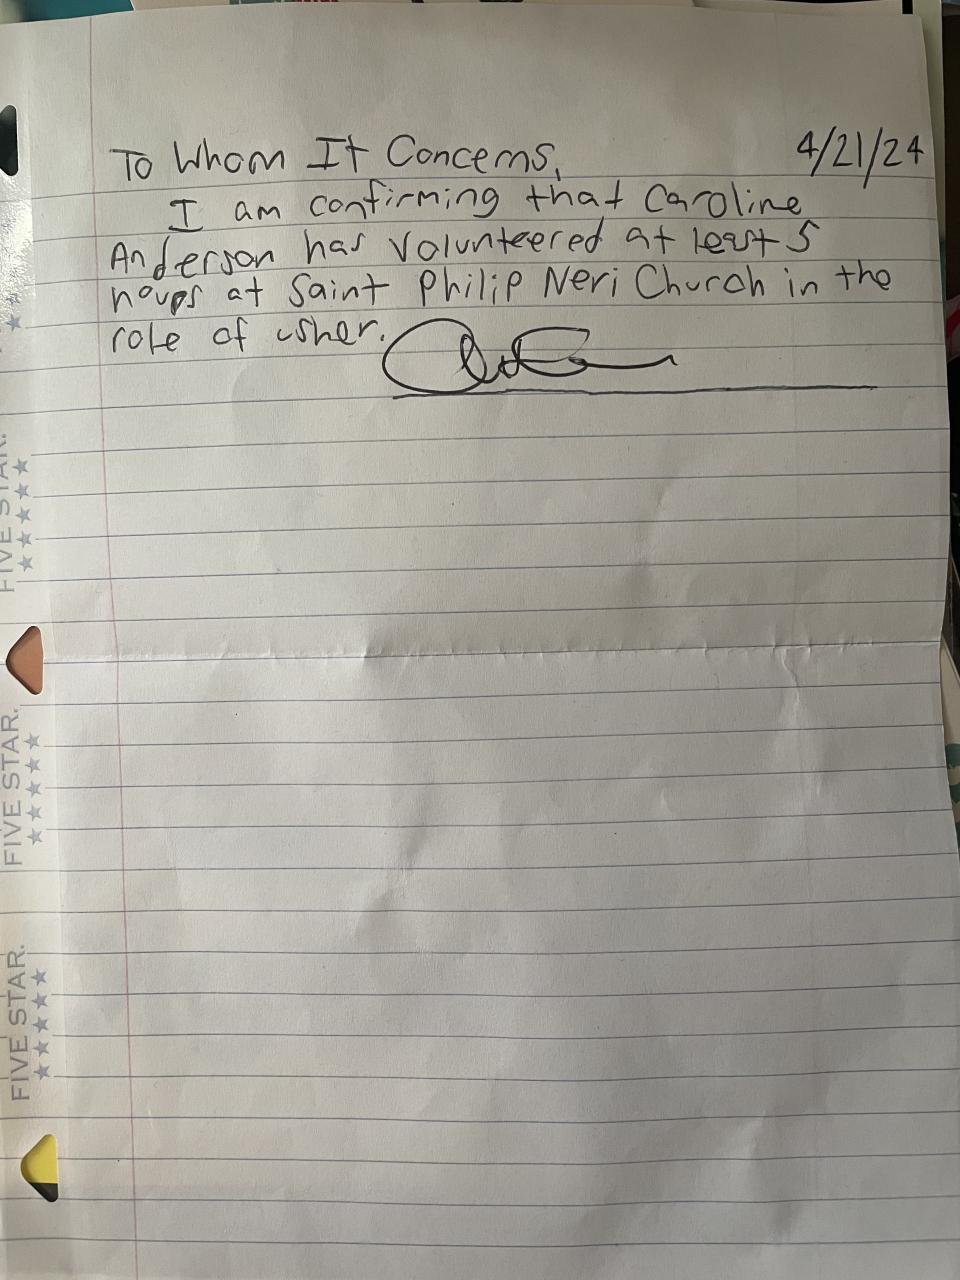 To Whom It Concerns, 4/21/24
I am confirming that Caroline
Anderson has volunteered at least 5
hours at Saint Philip Neri Church in the
role of usher.
FIVE STAR.
FIVE STAR.
FIVE STAR.